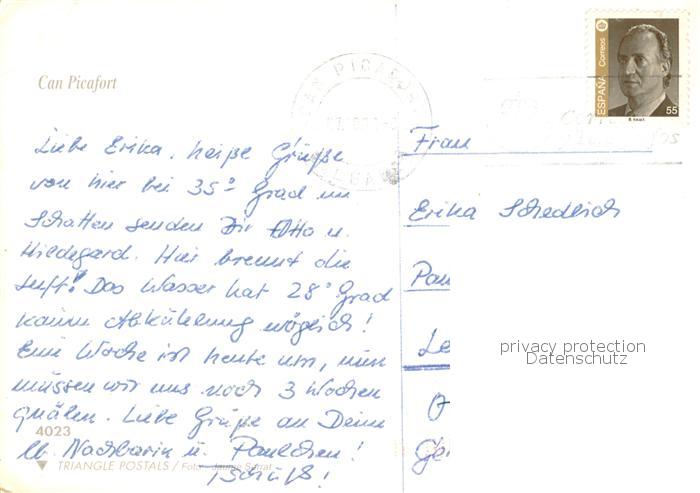 Can Picafort
ESPAÑA Correos
55
CAN PICAFORT
Liebe Erika, heiße Grüße
von hier bei 35° Grad im
Schatten senden Dir Otto u.
Hildegard. Hier brennt die
Luft! Das Wasser hat 28° Grad
kaum Abkühlung möglich!
Eine Woche ist heute um, nun
müssen wir uns noch 3 Wochen
quälen. Liebe Grüße an Deine
lb. Nachbarin u. Paulchen!
Tschüß!
4023
TRIANGLE POSTALS / Foto: Jaume Serrat
Frau
Erika Schedlich
Pau
Le
O
Ge
privacy protection
Datenschutz